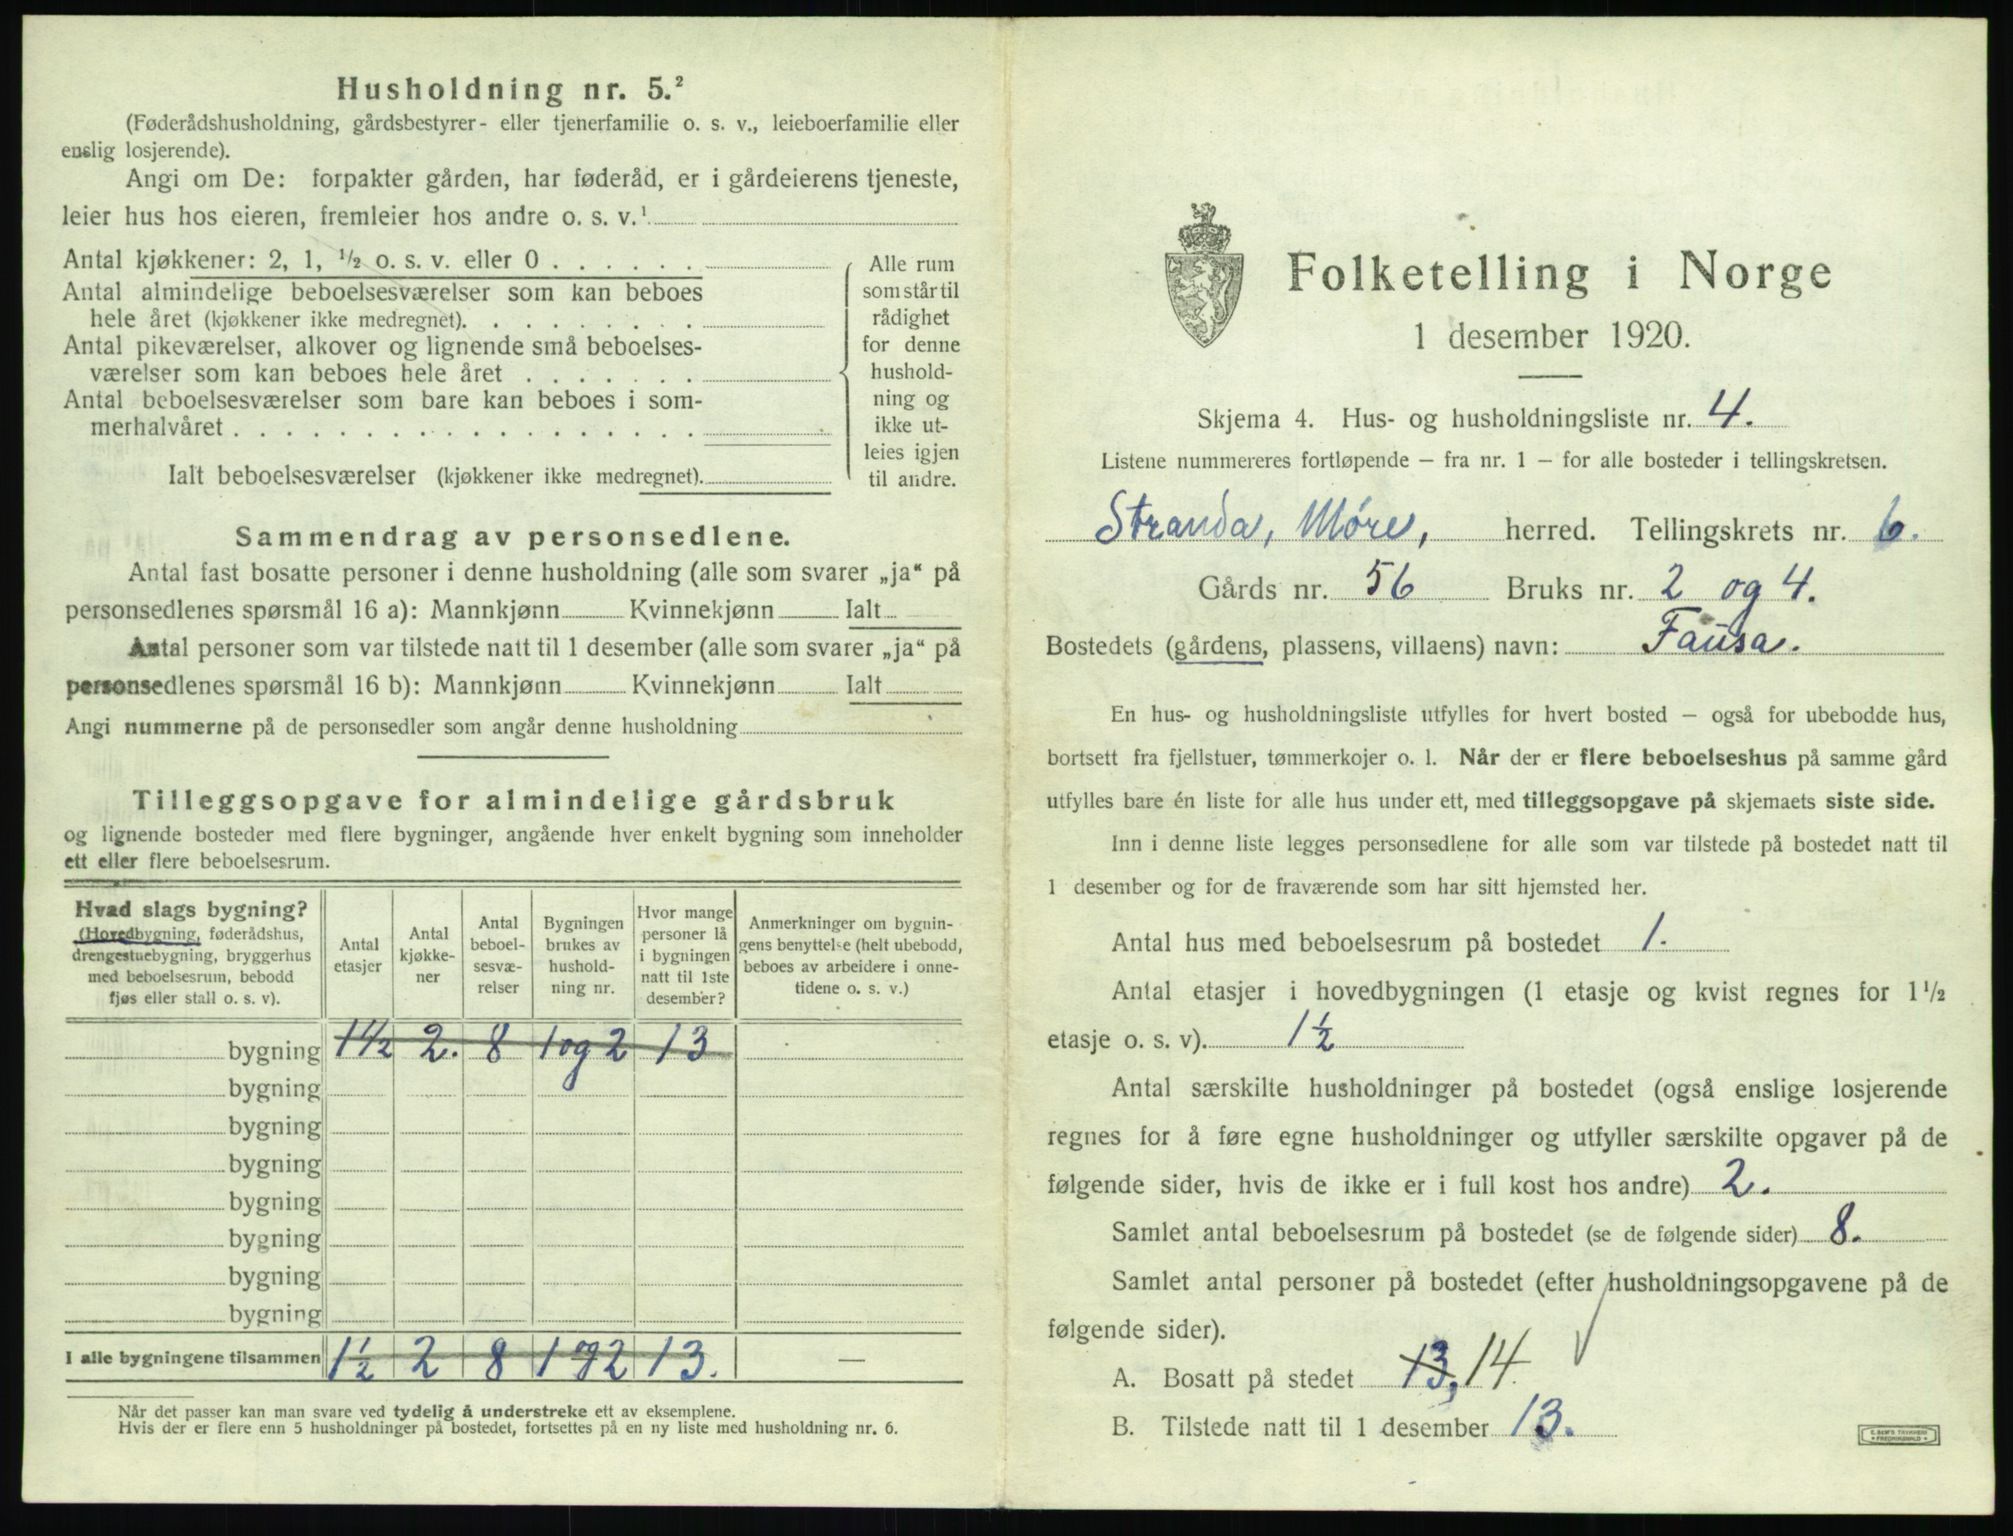 Husholdning nr. 5.²
(Føderådshusholdning, gårdsbestyrer- eller tjenerfamilie o. s. v., leieboerfamilie eller
enslig losjerende).
Angi om De: forpakter gården, har føderåd, er i gårdeierens tjeneste,
leier hus hos eieren, fremleier hos andre o. s. v.¹
Antal kjøkkener: 2, 1, ½ o. s. v. eller 0 . . . . . .
Antal almindelige beboelsesværelser som kan beboes
hele året (kjøkkener ikke medregnet). . . . . . . . .
Antal pikeværelser, alkover og lignende små beboelses-
værelser som kan beboes hele året . . . . . . .
Antal beboelsesværelser som bare kan beboes i som-
merhalvåret . . . . . . . . . . . . . . . . . .
Ialt beboelsesværelser (kjøkkener ikke medregnet).
Alle rum
som står til
rådighet
for denne
hushold-
ning og
ikke ut-
leies igjen
til andre.
Sammendrag av personsedlene.
Antal fast bosatte personer i denne husholdning (alle som svarer „ja" på
personsedlenes spørsmål 16 a): Mannkjønn Kvinnekjønn Ialt
Antal personer som var tilstede natt til 1 desember (alle som svarer „ja" på
personsedlenes spørsmål 16 b): Mannkjønn Kvinnekjønn Ialt
Angi nummerne på de personsedler som angår denne husholdning
Tilleggsopgave for almindelige gårdsbruk
og lignende bosteder med flere bygninger, angående hver enkelt bygning som inneholder
ett eller flere beboelsesrum.
Hvad slags bygning?
(Hovedbygning, føderådshus,
drengestuebygning, bryggerhus
med beboelsesrum, bebodd
fjøs eller stall o. s. v).
Antal
etasjer
Antal
kjøkke-
ner
Antal
beboel-
sesvæ-
relser
Bygningen
brukes av
hushold-
ning nr.
Hvor mange
personer lå
i bygningen
natt til 1ste
desember?
Anmerkninger om bygnin-
gens benyttelse (helt ubebodd,
beboes av arbeidere i onne-
tidene o. s. v.)
bygning 1½ 2. 8 1 og 2 13
bygning
bygning
bygning
bygning
bygning
bygning
bygning
I alle bygningene tilsammen 1½ 2 8 1 og 2 13. —
Når det passer kan man svare ved tydelig å understreke ett av eksemplene.
Hvis der er flere enn 5 husholdninger på bostedet, fortsettes på en ny liste med husholdning nr. 6.
Folketelling i Norge
1 desember 1920.
Skjema 4. Hus- og husholdningsliste nr. 4.
Listene nummereres fortløpende – fra nr. 1 – for alle bosteder i tellingskretsen.
Stranda, Møre, herred. Tellingskrets nr. 6.
Gårds nr. 56 Bruks nr. 2 og 4.
Bostedets (gårdens, plassens, villaens) navn: Fausa.
En hus- og husholdningsliste utfylles for hvert bosted – også for ubebodde hus,
bortsett fra fjellstuer, tømmerkojer o. l. Når der er flere beboelseshus på samme gård
utfylles bare én liste for alle hus under ett, med tilleggsopgave på skjemaets siste side.
Inn i denne liste legges personsedlene for alle som var tilstede på bostedet natt til
1 desember og for de fraværende som har sitt hjemsted her.
Antal hus med beboelsesrum på bostedet 1.
Antal etasjer i hovedbygningen (1 etasje og kvist regnes for 1½
etasje o. s. v). 1½
Antal særskilte husholdninger på bostedet (også enslige losjerende
regnes for å føre egne husholdninger og utfyller særskilte opgaver på de
følgende sider, hvis de ikke er i full kost hos andre) 2.
Samlet antal beboelsesrum på bostedet (se de følgende sider) 8.
Samlet antal personer på bostedet (efter husholdningsopgavene på de
følgende sider).
A. Bosatt på stedet 13, 14.
B. Tilstede natt til 1 desember 13.